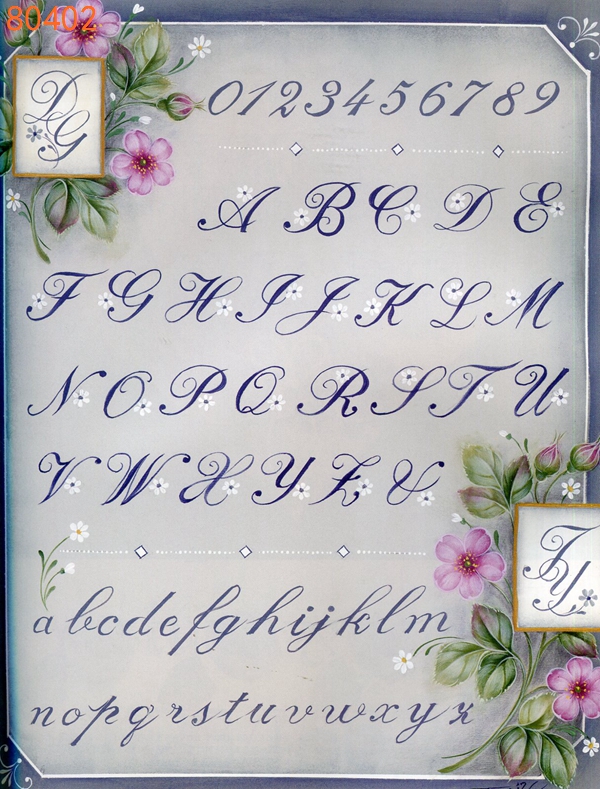 80402
D
G
0123456789
A B C D E
F G H I J K L M
N O P Q R S T U
V W X Y Z &
T
Y
a b c d e f g h i j k l m
n o p q r s t u v w x y z